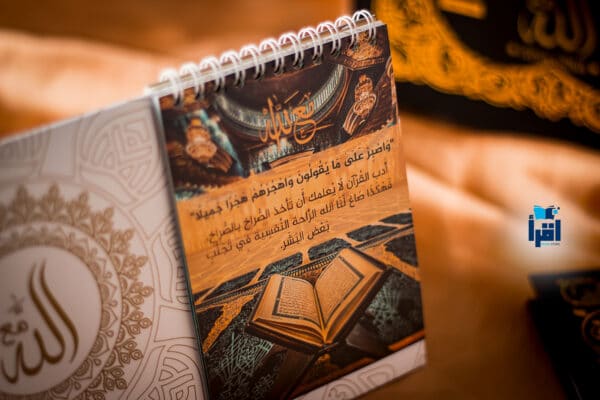 مع الله
"وَاصْبِرْ عَلَى مَا يَقُولُونَ وَاهْجُرْهُمْ هَجْرًا جَمِيلًا"
أدب القرآن لا يُعلمك أن تأخذ الصُراخ بالصُراخ،
فهكذا صاغ لنا الله الرَّاحة النّفسية في تجنب
بَعض البَشر.
مع
الله
الله
اقرأ